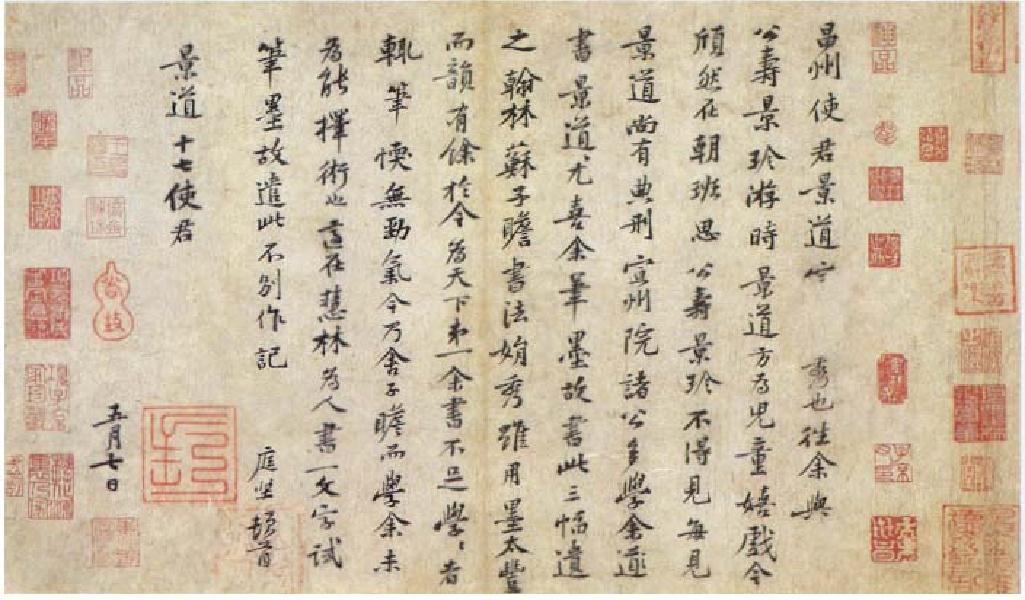 昌州使君景道宗秀也往余與
公壽景珍游時景道方為兒童嬉戲今
頎然在朝班思公壽景珍不得見每見
景道尚有典刑宣州院諸公多學余
書景道尤喜余筆墨故書此三幅遺
之翰林蘇子瞻書法娟秀雖用墨太豐
而韻有餘於今為天下第一余書不足學〻者
輒筆愞無勁氣今乃舍子瞻而學余未
為能擇術也適在慧林為人書一文字試
筆墨故遣此不別作記
庭堅頓首
景道十七使君
五月七日